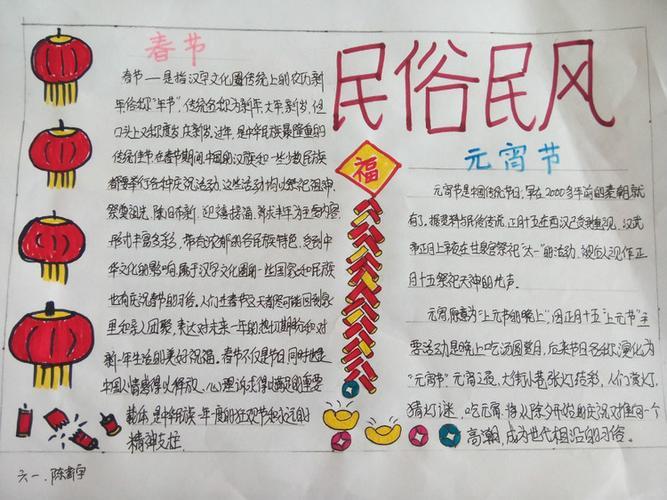 民俗民风
春节
春节——是指汉字文化圈传统上的农历新
年俗称"年节",传统名称为新年、大年、新岁,但
口头上又称度岁、庆新岁、过年,是中华民族最隆重的
传统佳节在春节期间中国的汉族和一些少数民族
都要举行各种庆祝活动。这些活动均以祭祀祖神、
祭奠祖先、除旧布新、迎禧接福、祈求丰年为主要内容
形式丰富多彩,带有浓郁的各民族特色。受到中
华文化的影响,属于汉字文化圈的一些国家和民族
也有庆祝春节的习俗。人们在春节这天都尽可能回到家
里和亲人团聚,表达对未来一年的热切期盼和对
新一年生活的美好祝福。春节不仅是节日同时也是
中国人情感得以释放、心理诉求得以满足的重要
载体,是中华民族一年一度的狂欢节和永远的
精神支柱。
福
元宵节
元宵节是中国传统节日,早在2000多年前的秦朝就
有了。据资料与民俗传说,正月十五在西汉已受到重视,汉武
帝正月上辛夜在甘泉宫祭祀"太一"的活动,被后人视作正
月十五祭祀天神的先声。
元宵原意为"上元节的晚上",因正月十五"上元节"主
要活动是晚上吃汤圆赏月,后来节日名称演化为
"元宵节"元宵之夜,大街小巷张灯结彩,人们赏灯,
猜灯谜,吃元宵,将从除夕开始的庆祝又推向一个
高潮,成为世代相沿的习俗。
六一、陈